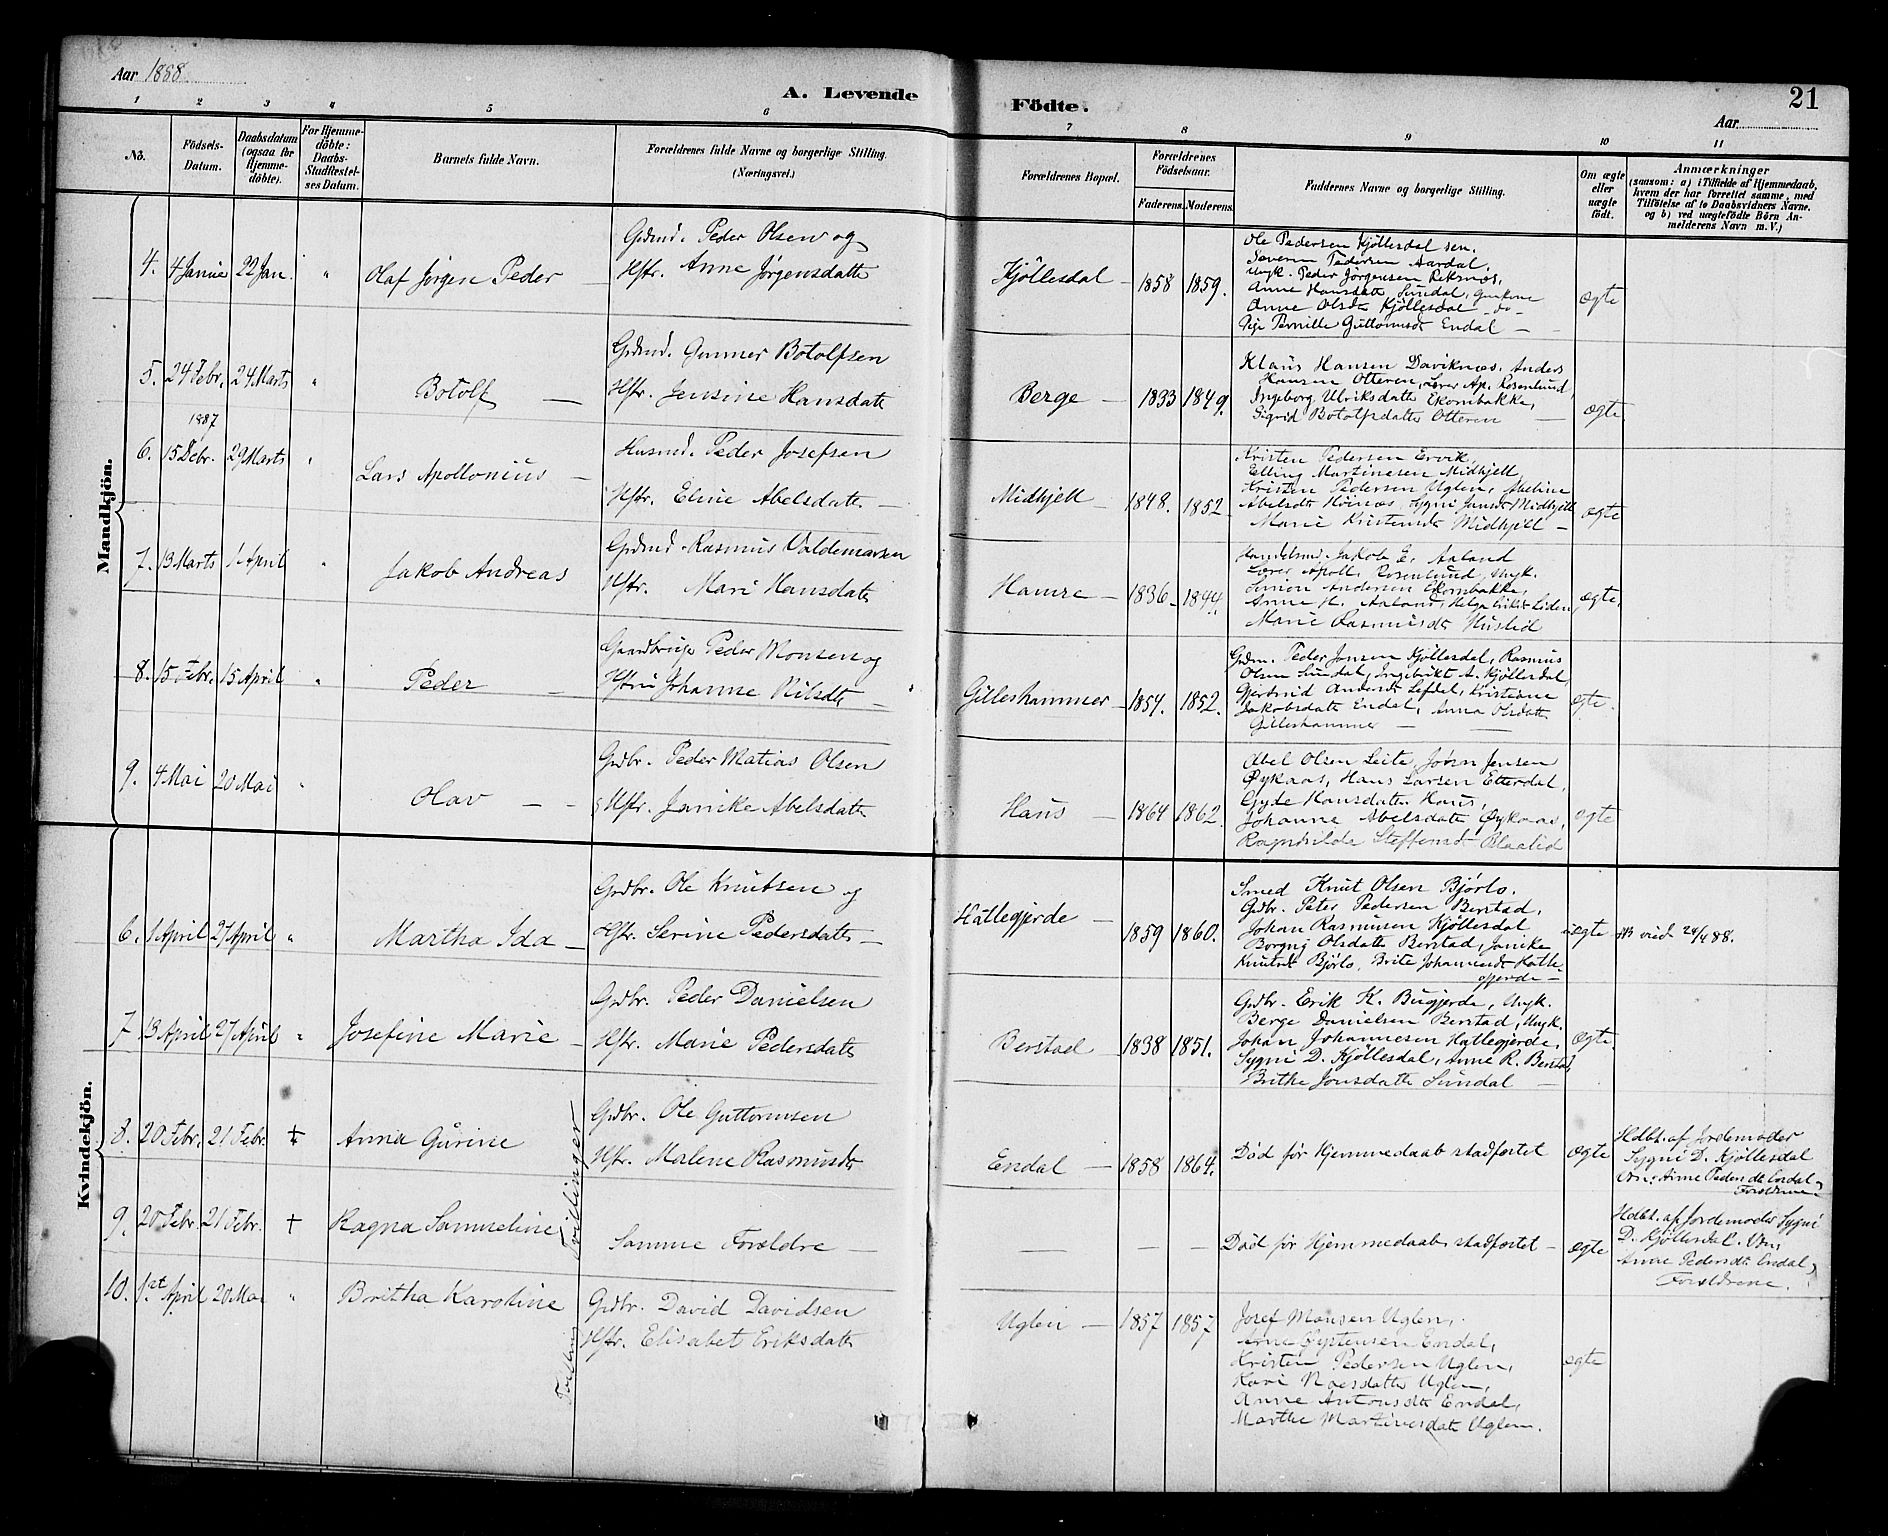 Aar 1888
A. Levende Födte.
21
Aar
1 2 3 4 5 6 7 8 9 10 11
No.
Födsels-Datum.
Daabsdatum (ogsaa for Hjemme-döbte).
For Hjemme-döbte: Daabs-Stadfæstel-ses Datum.
Barnets fulde Navn.
Forældrenes fulde Navne og borgerlige Stilling. (Næringsvei.)
Forældrenes Bopæl.
Forældrenes Födselsaar.
Faderens. Moderens.
Faddernes Navne og borgerlige Stilling.
Om ægte eller uægte födt.
Anmærkninger
(saasom: a) i Tilfælde af Hjemmedaab, hvem der har forrettet samme, med Tilföielse af to Daabsvidners Navne. og b) ved uægtefödte Börn An-melderens Navn m. V.)
Mandkjön.
4. 4 Janue 22 Jan. " Olaf Jørgen Peder
Grdmd. Peder Olsen og
Hstr. Anne Jørgensdatte
Kjöllesdal 1858 1859.
Ole Pedersen Kjöllesdal sen.
Severin Pedersen Aardal,
Ungk. Peder Jörgensen Reksnæs,
Anne Hansdatte Sundal, Gaardkone
Anne Olsdt Kjöllesdal - do -
Pige Pernille Guttormsdt Endal
ægte
5. 24 Febr. 24 Marts " Botolf
Grdmd. Gunner Botolfsen
Hstr. Jensine Hansdatt
Berge 1833 1849.
Klaus Hansen Daviknæs, Anders
Hansen Otteren, Lærer Ap. Rosenlund,
Ingeborg Ulriksdatte Ekornbakke,
Sigrid Botolfsdatte Otteren
ægte
1887
6. 15 Debr. 29 Marts " Lars Apollonius
Husmd. Peder Josefsen
Hstr. Eline Abelsdatte
Midhjell 1848. 1852
Kristen Pedersen Ervik,
Elling Martinesen Midhjell,
Kristen Pedersen Uglen, Abeline
Abelsdt Höinæs, Sygni Jansdt Midhjell
Marie Kristensdt Midhjell
ægte
7. 13 Marts 1 April " Jakob Andreas
Grdmd. Rasmus Valdemarsen
Hstr. Mari Hansdatte
Hamre 1836. 1844.
Handelsmd. Jakob E. Aaland
Lærer Apoll. Rosenlund, Ungk.
Simon Andersen Ekornbakke,
Anne H. Aaland, Helga Eriksdt Liden,
Marie Rasmusdt Hustid
ægte
8. 15 Febr. 15 April " Peder
Gaardbruge Peder Monsen og
Hstru Johanne Nilsdt
Gilleshammer 1854. 1852.
Grdm. Peder Jonsen Kjöllesdal, Rasmus
Olsen Sundal, Ingebrikt A. Kjöllesdal,
Gjertrud Andersdt Lefdal, Kristiane
Jakobsdatte Endal, Anna Olsdatte
Gilleshammer
ægte.
9. 4 Mai 20 Mai " Olav
Grdbr. Peder Matias Olsen
Hstr. Janike Abelsdatte
Haus 1864 1862.
Abel Olsen Leite, Jörn Jensen
Öykaas, Hans Larsen Etterdal,
Gyde Hansdatte Haus,
Johanne Abelsdatte Öykaas,
Ragnhilda Steffensdt Blaalid
ægte
Kvindekjön.
6. 1 April 27 April " Martha Ida
Grdbr. Ole Knutsen og
Hstr. Serine Pedersdatte
Hattegjerde 1859 1860.
Smed Knut Olsen Björlo.
Grdbr. Peter Pedersen Berstad,
Johan Rasmusen Kjöllesdal
Borgny Olsdatte Berstad, Janike
Knutsdt Björlo, Brite Johannesdt Hatte-
gjerde
uægte
viet 24/4 88.
7 13 April 27 April " Josefine Marie
Grdbr. Peder Danielsen
Hstr. Marie Pedersdatte
Berstad 1838 1851.
Grdbr. Erik K. Bugjerde, Ungk.
Berge Danielsen Berstad, Ungk.
Johan Johannesen Hattegjerde,
Sygni D. Kjöllesdal, Anne R. Berstad,
Brithe Jonsdatte Sundal
ægte.
Tvillinger
8. 20 Febr. 21 Febr. + Anna Gurine
Grdbr. Ole Guttormsen
Hstr. Malene Rasmusdt
Endal 1858 1864.
Død før Hjemmedaab stadfæstet
ægte
Hdbt. af Jordemoder
Sygni D. Kjöllesdal
Vn: Anne Pedersdt Endal,
Forældrene
9. 20 Febr. 21 Febr. + Ragna Samueline
Samme Forældre
Død før Hjemmedaab stadfæstet
ægte
Hdbt. af Jordemoder Sygni
D. Kjöllesdal. Vn,
Anne Pedersdt Endal,
Forældrene.
10. 1st April 20 Mai " Britha Karoline
Grdbr. David Davidsen
Hstr. Elisabet Eriksdatte
Uglen 1857 1857
Josef Monsen Uglen,
Arne Öystensen Endal,
Kristen Pedersen Uglen,
Kari Naesdatte Uglen,
Anne Antonsdt Endal,
Marthe Martinesdatt Uglen.
ægte